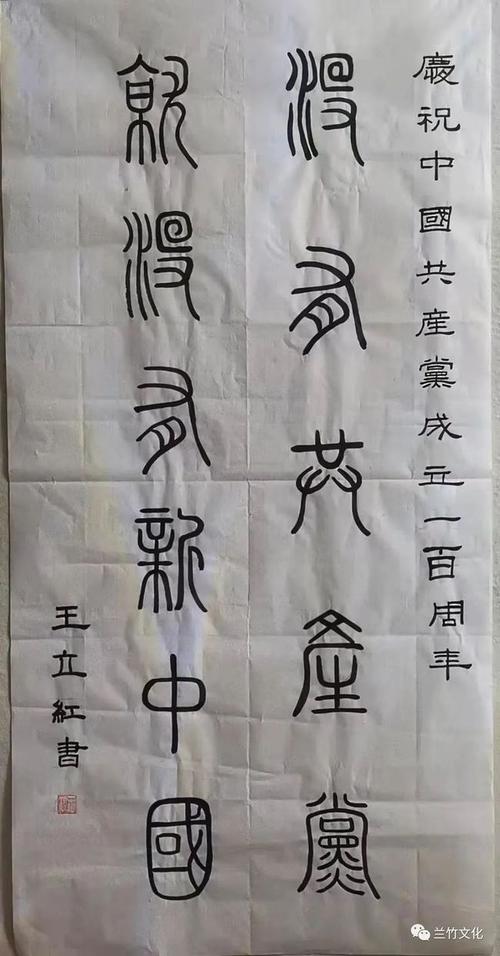 慶祝中國共產黨成立一百周年
沒有共產黨
就沒有新中國
王立紅書
兰竹文化